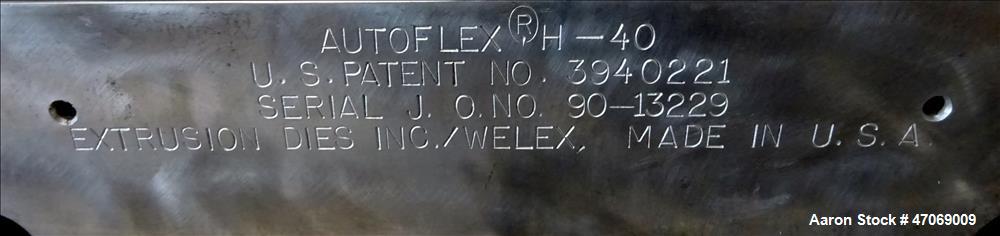 AUTOFLEX® H-40
U.S. PATENT NO. 3940221
SERIAL J.O.NO. 90-13229
EXTRUSION DIES INC./WELEX, MADE IN U.S.A.
Aaron Stock # 47069009